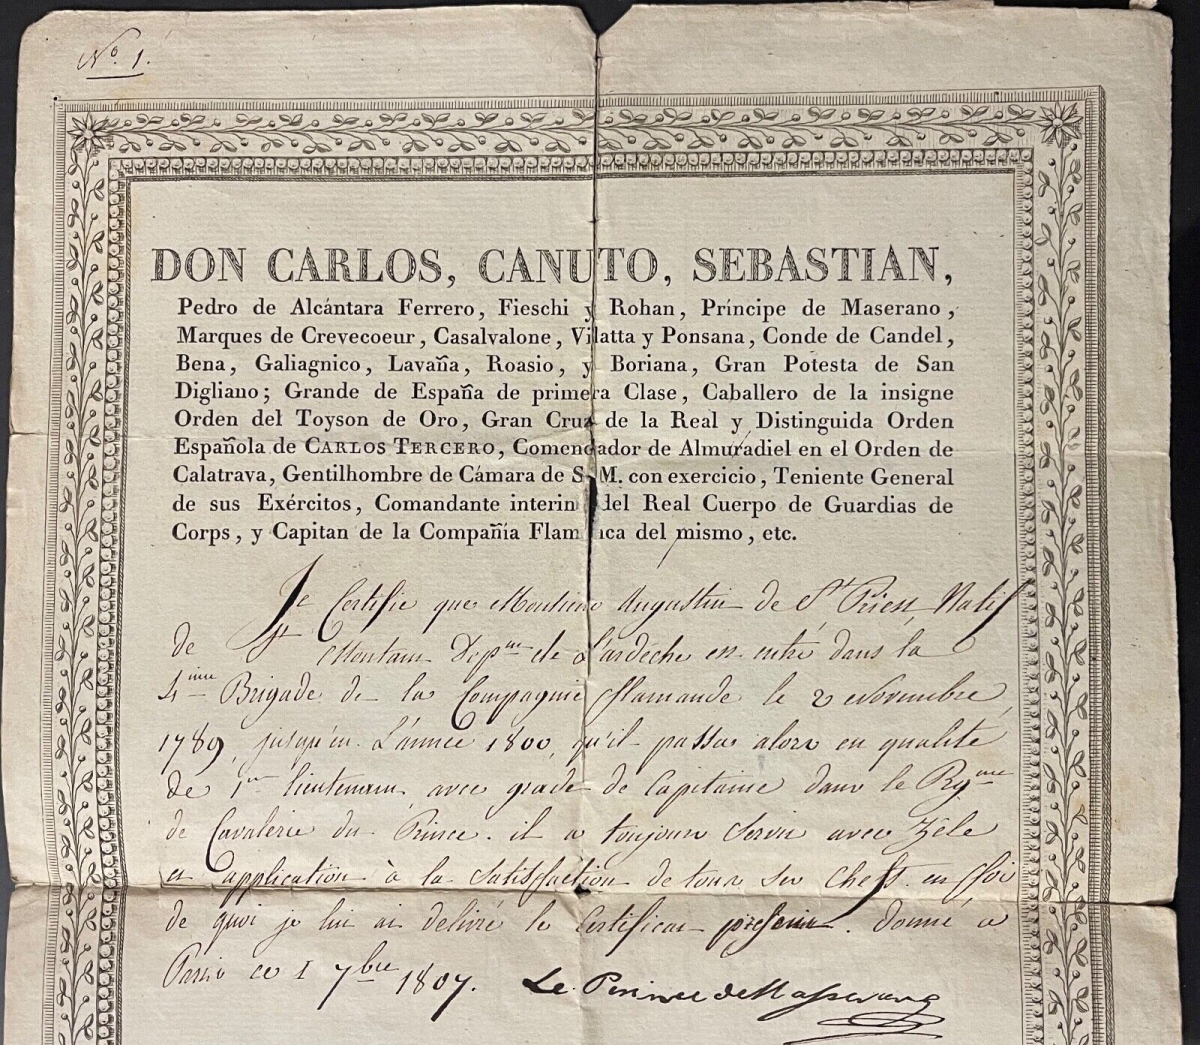 Nº. 1.
DON CARLOS, CANUTO, SEBASTIAN,
Pedro de Alcántara Ferrero, Fieschi y Rohan, Príncipe de Maserano,
Marques de Crevecoeur, Casalvalone, Vilatta y Ponsana, Conde de Candel,
Bena, Galiagnico, Lavaña, Roasio, y Boriana, Gran Potesta de San
Digliano; Grande de España de primera Clase, Caballero de la insigne
Orden del Toyson de Oro, Gran Cruz de la Real y Distinguida Orden
Española de CARLOS TERCERO, Comendador de Almuradiel en el Orden de
Calatrava, Gentilhombre de Cámara de S. M. con exercicio, Teniente General
de sus Exércitos, Comandante interin del Real Cuerpo de Guardias de
Corps, y Capitan de la Compañía Flamenca del mismo, etc.
Je Certifie que Monsieur Augustin de St. Priest, Natif
de St Montain Depnt de Lardeche est entré dans la
4ieme Brigade de la Compagnie flamande le 2 Novembre
1789, jusqu'en L'année 1800, qu'il passa alors en qualité
de 1er lieutenant, avec grade de Capitaine dans le Rgme
de Cavalerie du Prince. il a toujours servi avec Zèle
et application à la satisfaction de tous ses chefs. en foi
de quoi je lui ai delivré le Certificat present. donné a
Paris ce 1 7bre 1807. Le Prince de Masserano